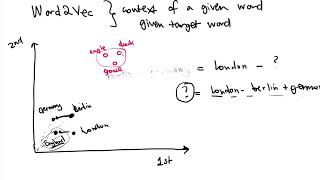 Word2Vec } context of a given word
given target word
2nd
eagle duck
goose
= London - ?
Germany Berlin
? = London - Berlin + german
England London
1st